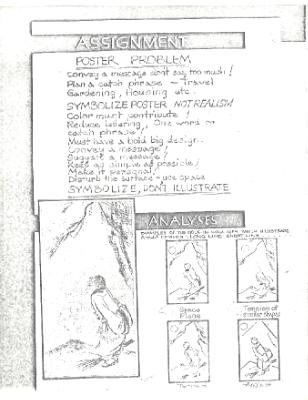 ASSIGNMENT
POSTER PROBLEM
Convey a message don't say too much!
Plan a catch phrase — Travel
Gardening, Housing etc.
SYMBOLIZE POSTER NOT REALISM
Color must contribute!
Reduce lettering, One word or
catch phrase!
Must have a bold big design.
Convey a message!
Suggest a message!
Keep as simple as possible!
Make it personal!
Disturb the surface - use space
SYMBOLIZE, DON'T ILLUSTRATE
ANALYSES
EXAMPLES OF THE
WHICH ILLUSTRATE
Space
Plane
Tension of
similar shapes